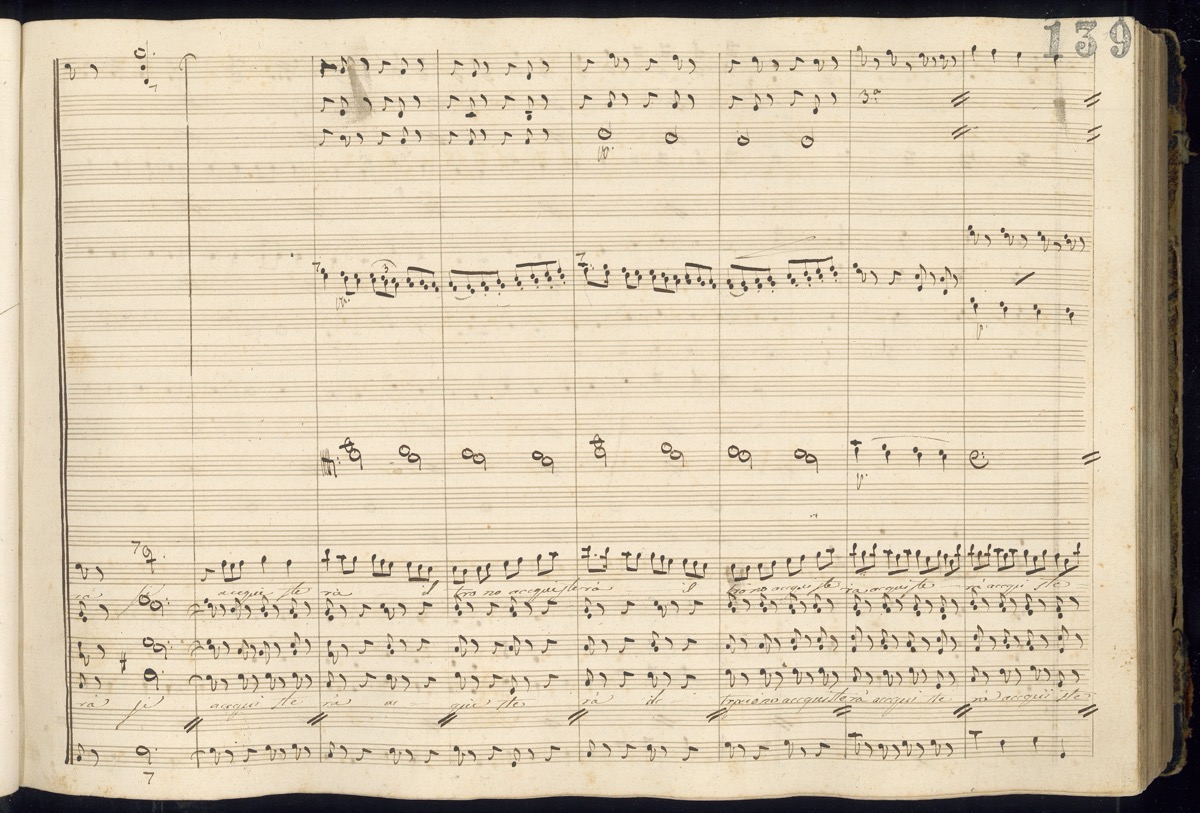 139
3ª
3
rà sì acqui ste rà il tro no acqui ste rà il tro no acqui ste rà acqui ste rà acqui ste
rà sì acqui ste rà ac qui ste rà il trono acqui ste rà acqui ste rà acqui ste